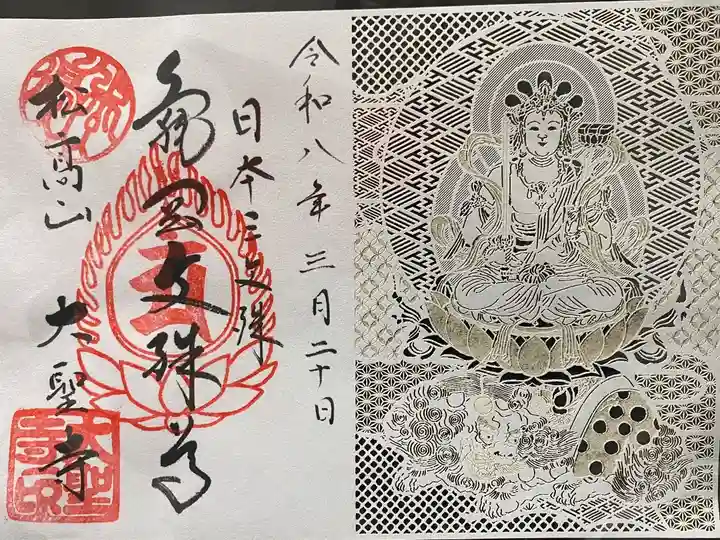 令和八年三月二十日
日本三文殊
亀岡文殊尊
松高山 大聖寺
大聖寺印